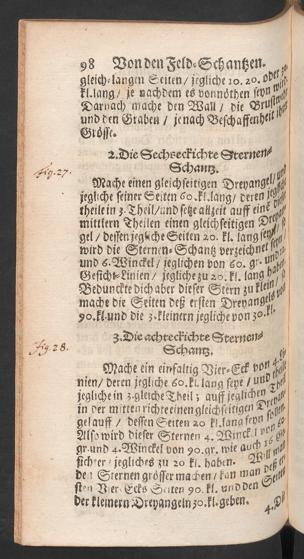 98 Von den Feld-Schantzen.
gleich-langen Seiten / jegliche 10. 20. oder 30
kl. lang / je nachdem es vonnöthen seyn wird.
Darnach mache den Wall / die Brustwehr
und den Graben / je nach Beschaffenheit ihrer
Grösse.
2. Die Sechseckichte Sternen-
Schantz.
Fig. 27.
Mache einen gleichseitigen Dreyangel / und
jegliche seiner Seiten 60. kl. lang / deren jegliche
theile in 3. Theil / und setze allzeit auff eine der
mittlern Theilen einen gleichseitigen Dreyan-
gel / dessen jegliche Seiten 20. kl. lang seye / so
wird die Sternen-Schantz verzeichnet seyn
und 6. Winckel / jeglichen von 60. gr. und
Gesicht-Linien / jegliche zu 20. kl. lang haben.
Bedunckte dich aber dieser Stern zu klein /
mache die Seiten deß ersten Dreyangels von
90. kl. und die 3. kleinern jegliche von 30. kl.
3. Die achteckichte Sternen-
Schantz.
Fig. 28.
Mache ein einfaltig Vier-Eck von 4. Li-
nien / deren jegliche 60. kl. lang seye / und theile
jegliche in 3. gleiche Theil; auff jeglichen Theil
in der mitten richte einen gleichseitigen Dreyan-
gel auff / dessen Seiten 20 kl. lang seyn sollen.
Also wird dieser Sternen 4. Winckel von 60
gr. und 4. Winckel von 90. gr. wie auch 16 Ge-
sichter / jegliches zu 20 kl. haben. Will man
den Sternen grösser machen / kan man deß
sten Vier-Ecks Seiten 90. kl. und den Seiten
der kleinern Dreyangeln 30. kl. geben.
4. Die